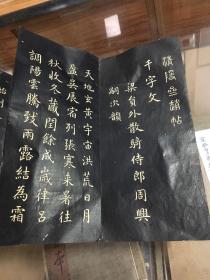 千字文
梁員外散騎侍郎周興
嗣次韻
天地玄黃宇宙洪荒日月
盈昃辰宿列張寒來暑往
秋收冬藏閏餘成歲律呂
調陽雲騰致雨露結為霜